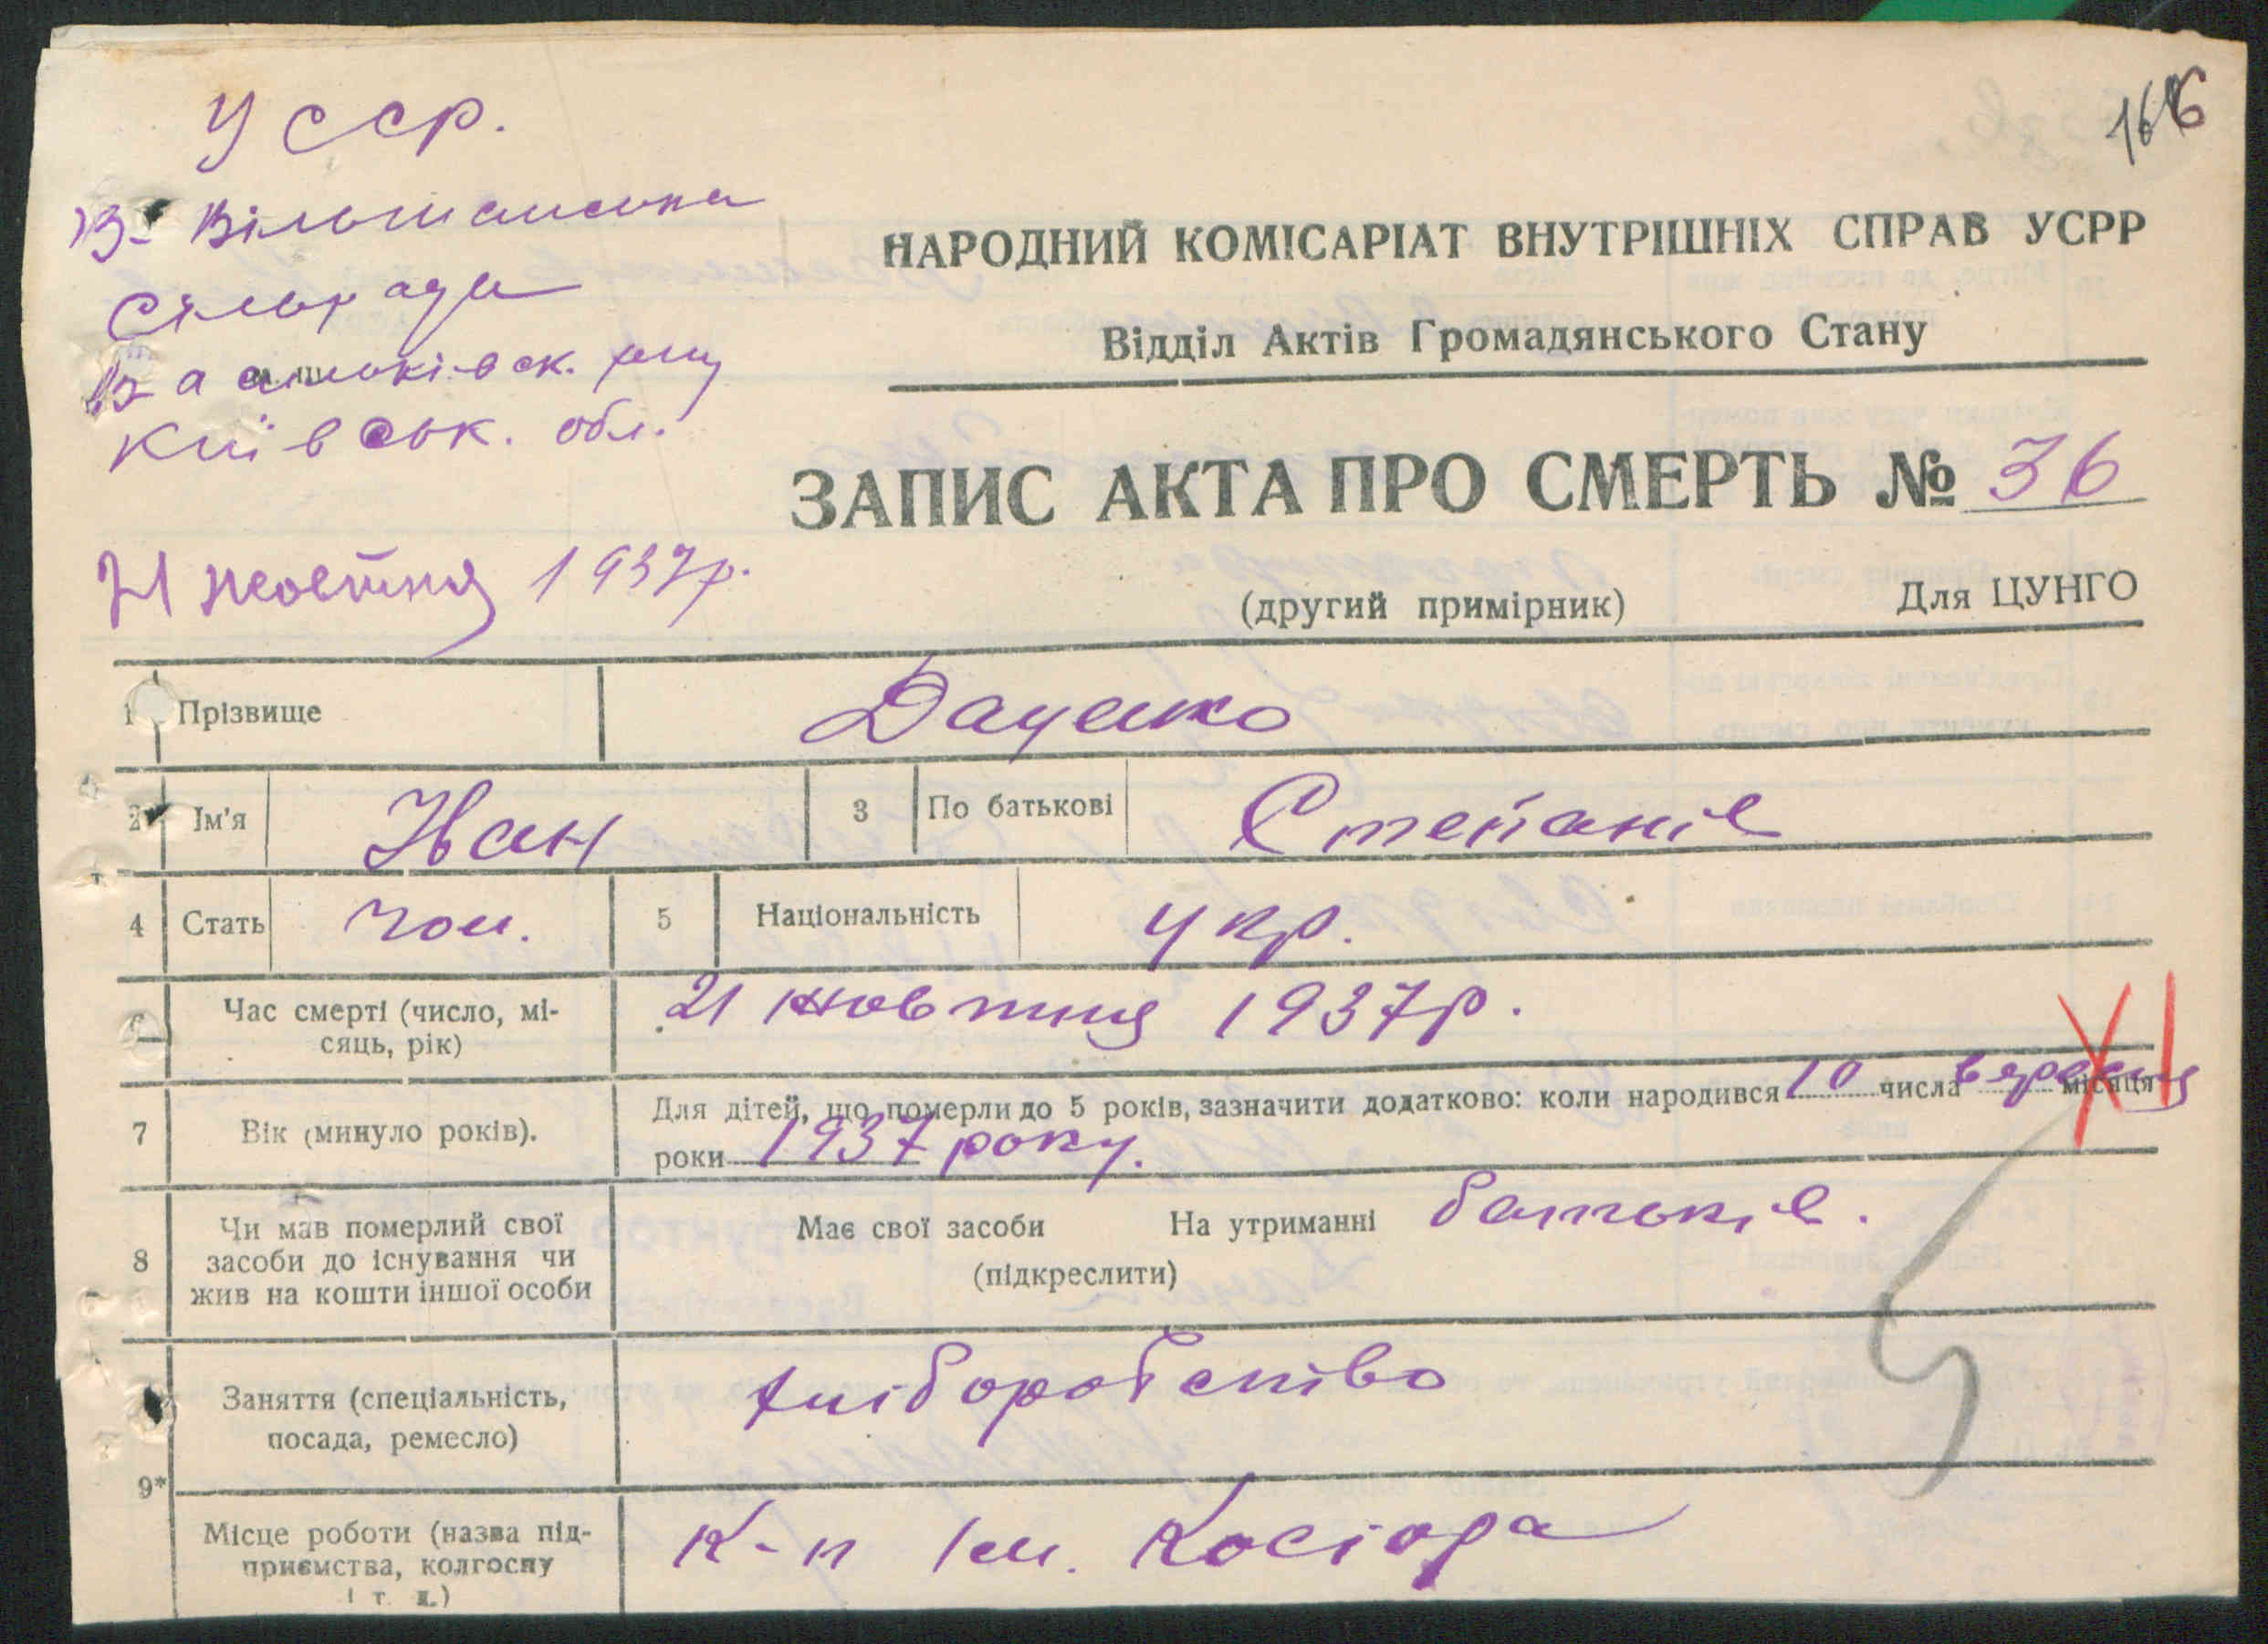 УССР.
166
В- Вільшанська
сільрада
Васильківськ. р-ну
Київськ. обл.
НАРОДНИЙ КОМІСАРІАТ ВНУТРІШНІХ СПРАВ УСРР
Відділ Актів Громадянського Стану
ЗАПИС АКТА ПРО СМЕРТЬ № 36
21 жовтня 1937р.
(другий примірник) Для ЦУНГО
1 Прізвище Даценко
2 Ім'я Іван 3 По батькові Степанів
4 Стать чол. 5 Національність укр.
6 Час смерті (число, мі-
сяць, рік) 21 жовтня 1937р.
7 Вік (минуло років). Для дітей, що померли до 5 років, зазначити додатково: коли народився 10 числа вересня місяця
роки 1937 року.
XI
8 Чи мав померлий свої
засоби до існування чи
жив на кошти іншої особи
Має свої засоби На утриманні батьків.
(підкреслити)
9*
Заняття (спеціальність,
посада, ремесло) хліборобство
Місце роботи (назва під-
приємства, колгоспу
і т. д.)
К-п ім. Косіора